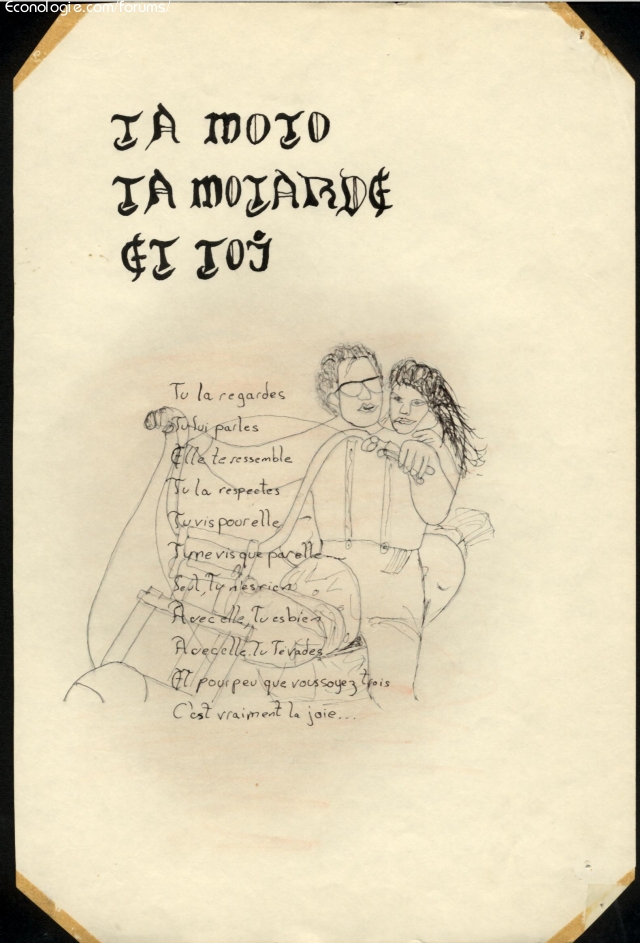 Econologie.com/forums/
TA MOTO
TA MOTARDE
ET TOI
Tu la regardes
Tu lui parles
Elle te ressemble
Tu la respectes
Tu vis pour elle
Tu ne vis que par elle
Seul, Tu n'es rien
Avec elle, Tu es bien
Avec elle, Tu T'evades
Et pour peu que vous soyez trois
C'est vraiment la joie...